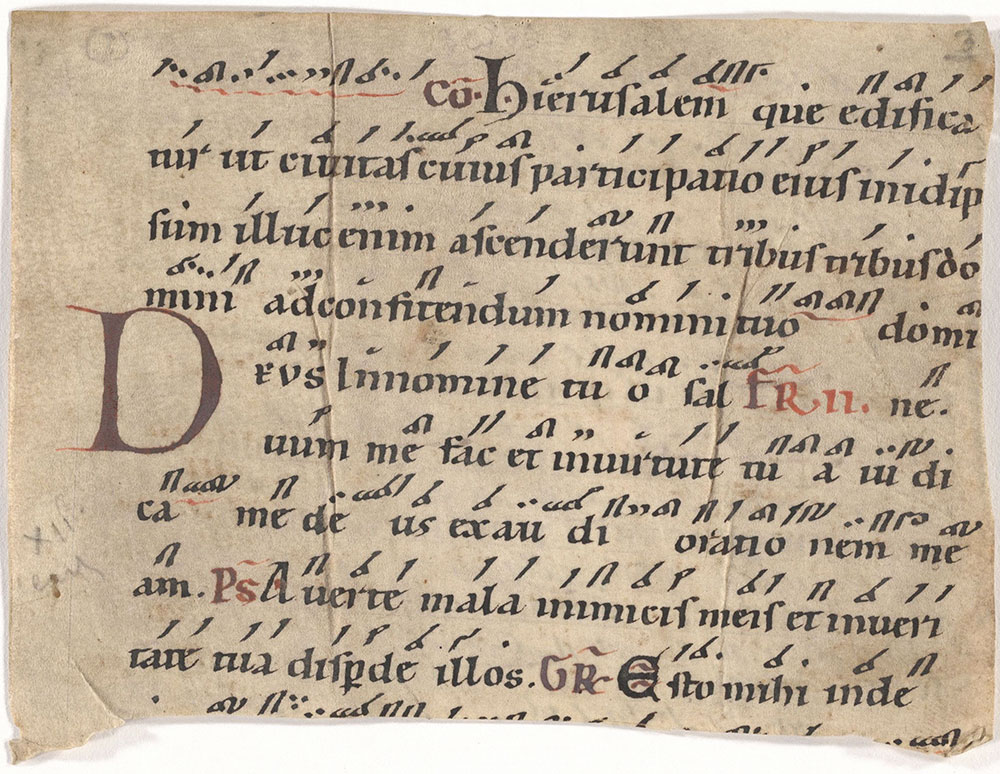 Co. hierusalem que edifica
tur ut ciuitas cuius participatio eius inidip
sum illuc enim ascenderunt tribus tribus do
mini adconfitendum nomini tuo domi
D EVS Innomine tu o sal FR. II. ne.
uum me fac et inuirtute tu a iu di
ca me de us exau di oratio nem me
am. Ps Auerte mala inimicis meis et inueri
tate tua disperde illos. GR Esto mihi inde